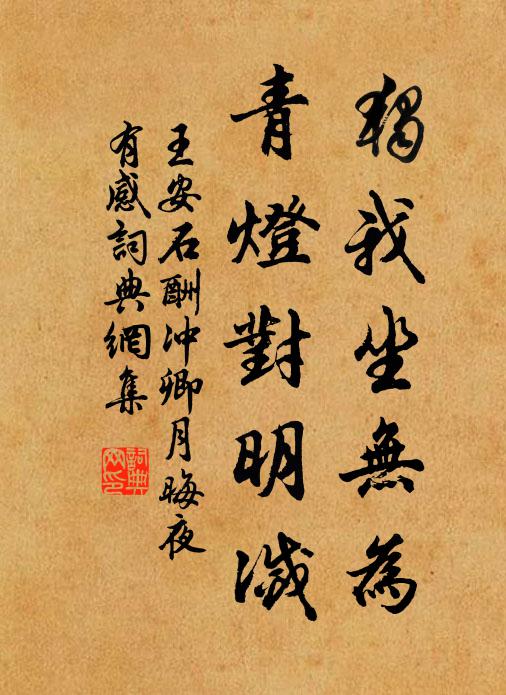 獨我坐無為
青燈對明滅
王安石酬冲卿月晦夜
有感詞典網集
詞典網印